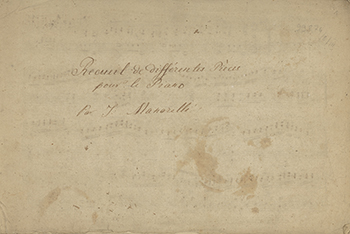 Recueil de différentes Pièce
pour le Piano
Par J